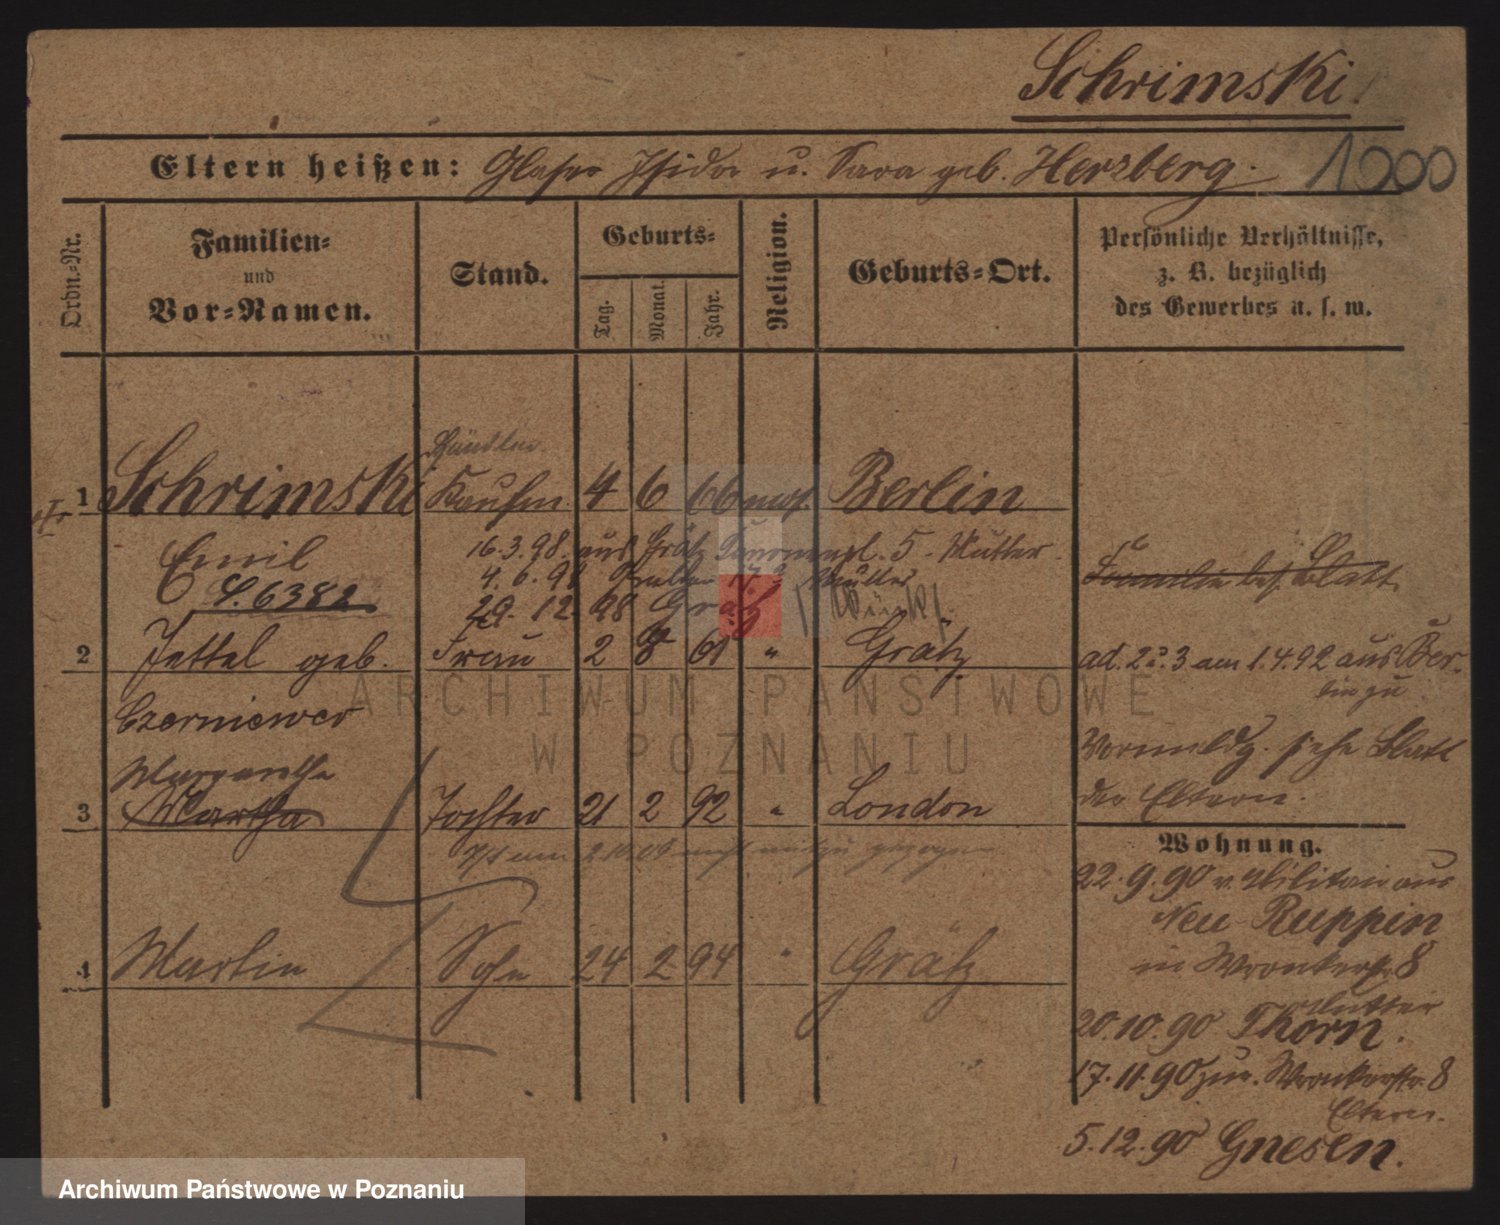 Schrimski.
Eltern heißen: Glaser Isidor u. Sara geb. Herzberg.
1000
Ordn.-Nr.
Familien-
und
Vor-Namen.
Stand.
Geburts-
Tag.
Monat.
Jahr.
Religion.
Geburts-Ort.
Persönliche Verhältnisse,
z. B. bezüglich
des Gewerbes u. s. w.
Händler
1 Schrimski Kaufm. 4 6 66 mos. Berlin
Emil
S. 6382
16.3.98. aus Grätz 5 - Mutter.
4.6.98 Mutter
29.12.98 Grätz
Familie bes. Blatt
2 Jettel geb. Frau 2 8 61 " Grätz
Czerniewer
ad. 2 u. 3 am 1.4.92 aus Ber-
lin zu
Vormeldg. siehe Blatt
der Eltern.
Margarethe
3 Martha Tochter 21 2 92 " London
4 Martin Sohn 24 2 94 " Grätz
Wohnung.
22.9.90 v. Militair aus
Neu Ruppin
in Wronkerstr 8
Mutter
20.10.90 Thorn.
17.11.90 zur. Wronkerstr. 8
Eltern.
5.12.90 Gnesen.
ARCHIWUM PAŃSTWOWE
W POZNANIU
Archiwum Państwowe w Poznaniu